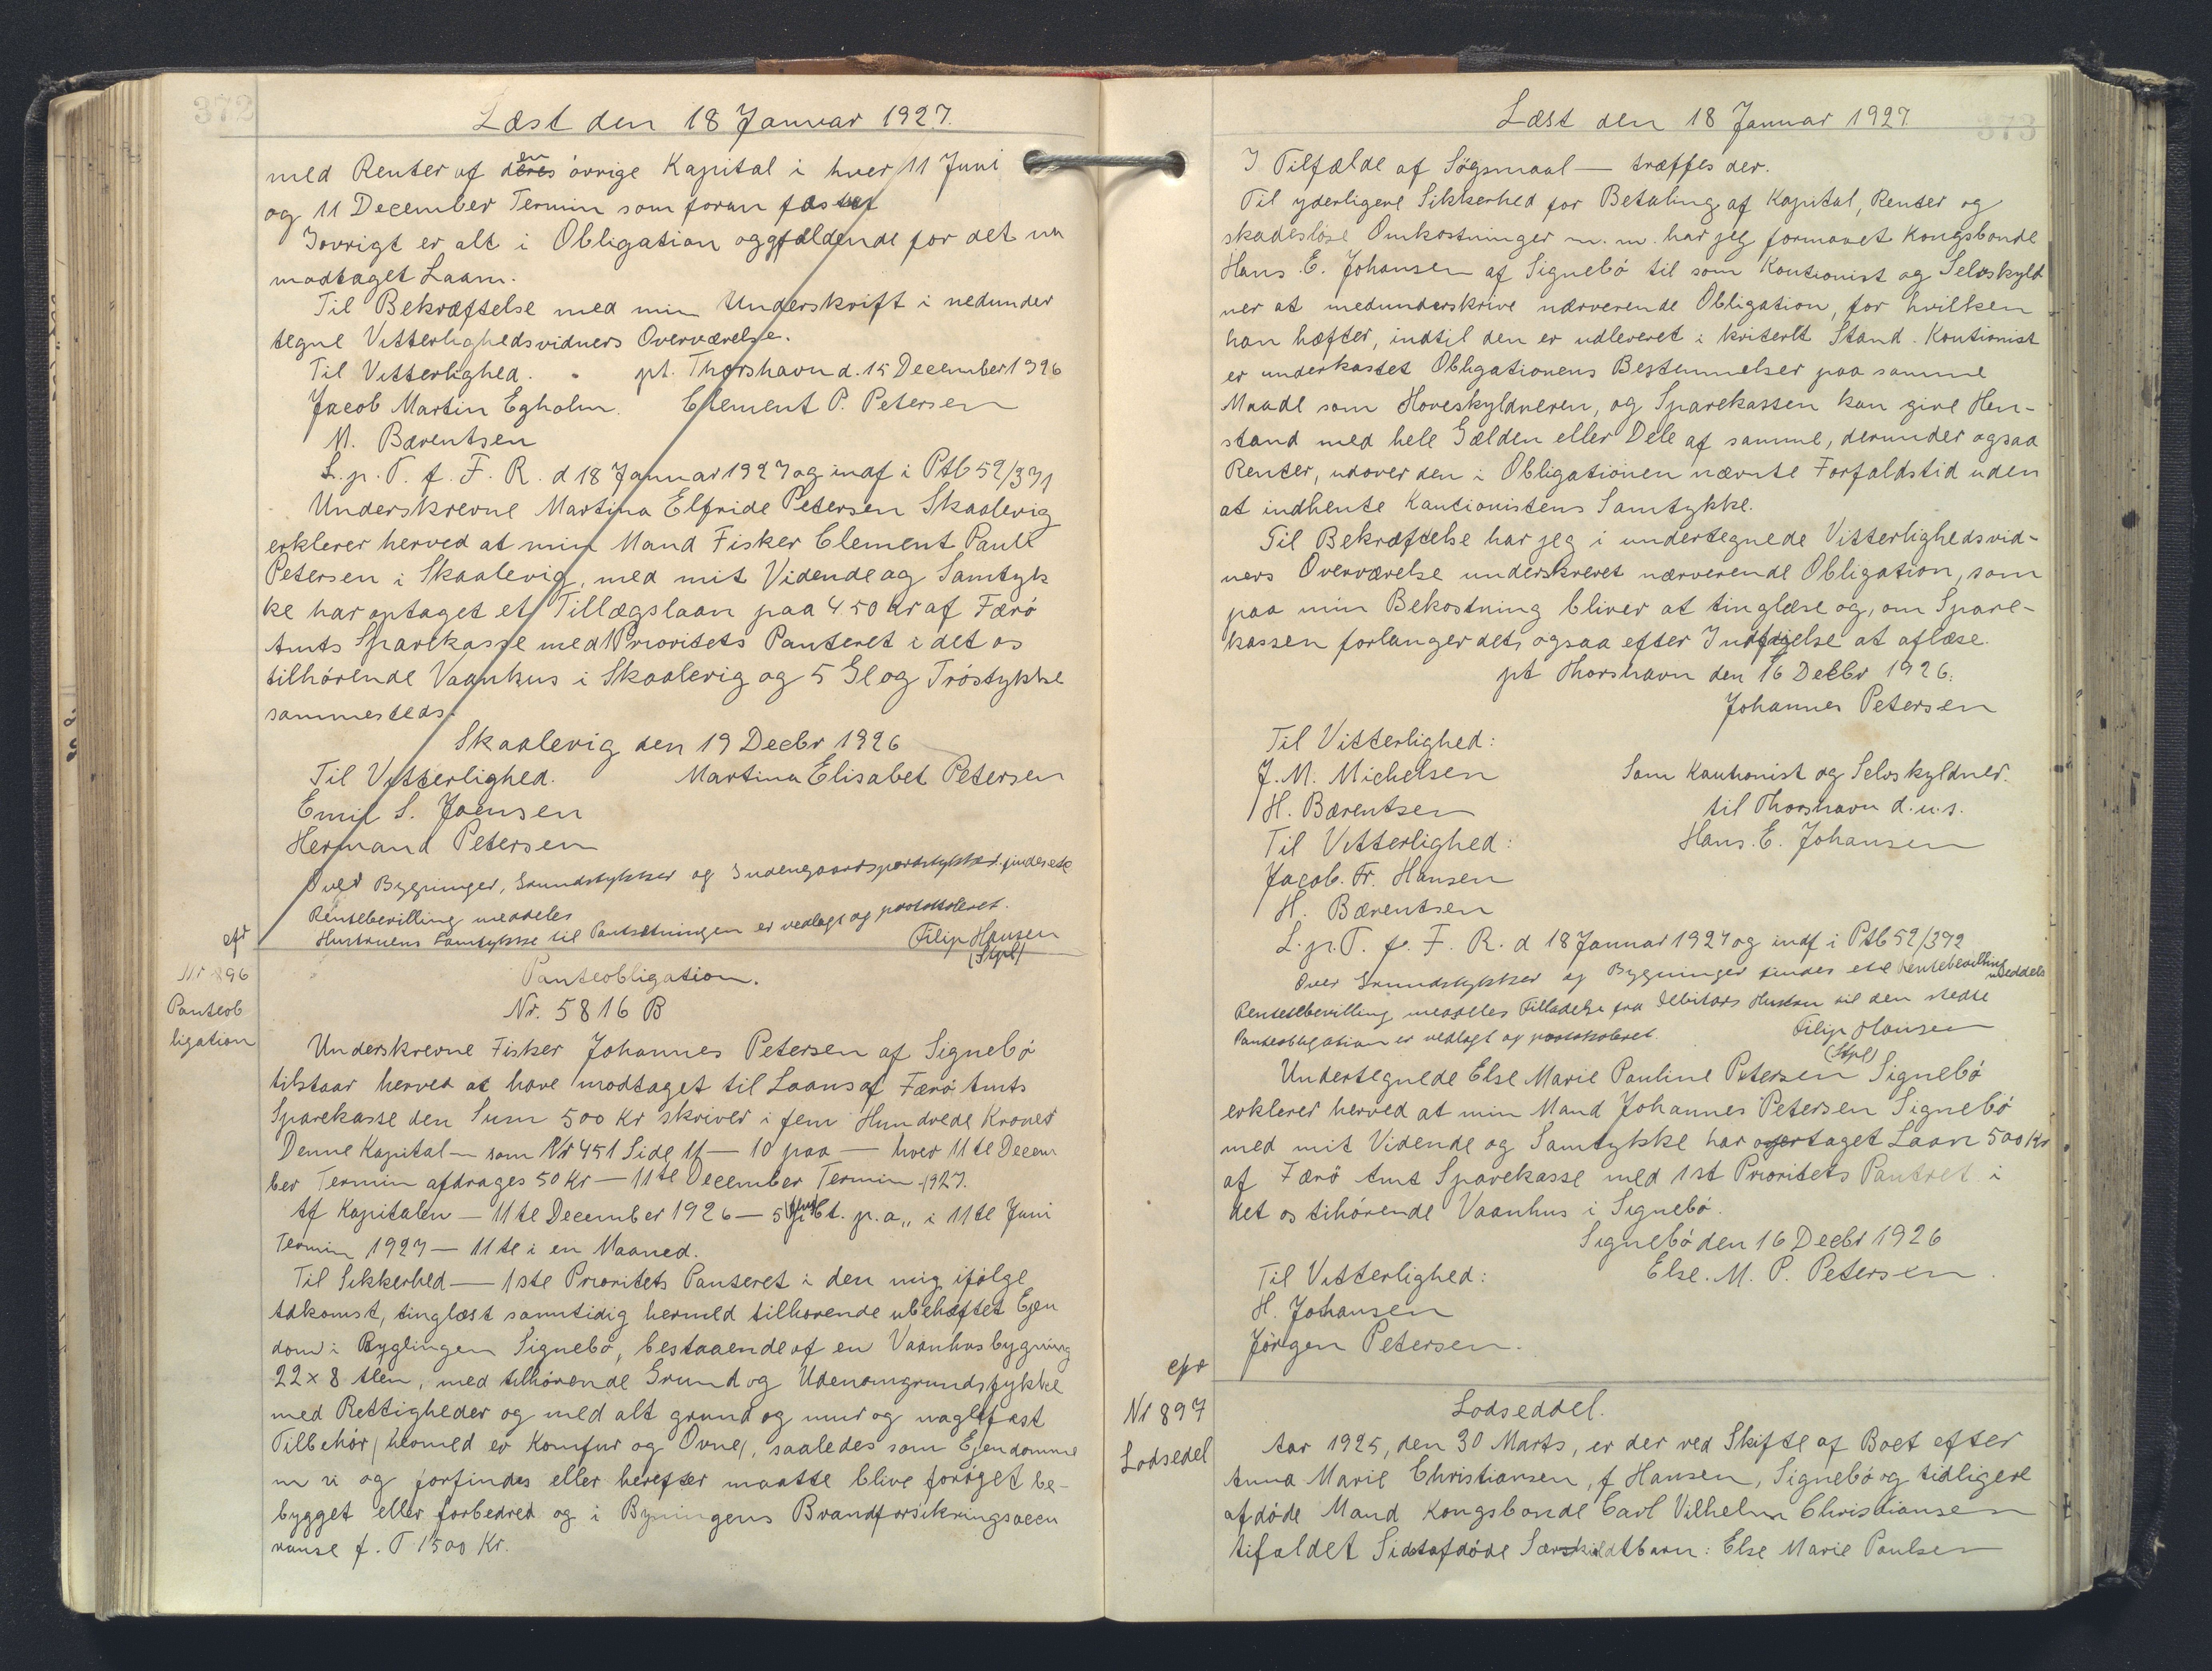 372
Læst den 18 Januar 1927.
med Renter af den övrige Kapital i hver 11 Juni
og 11 December Termin som foran fastsat
Iövrigt er alt i Obligation oggfældende for det nu
modtaget Laan.
Til Bekræftelse med min Underskrift i nedunder
tegne Vitterlighedsvidners Overværelse.
Til Vitterlighed. pt. Thorshavn d. 15 December 1926
Jacob Martin Egholm. Clement P. Petersen
M. Bærentsen
L. p. T. f. F. R. d 18 Januar 1927 og indf i Ptb 52/371
Underskrevne Martina Elfride Petersen Skaalevig
erklerer herved at min Mand Fisker Clement Paull
Petersen i Skaalevig, med mit Vidende og Samtyk
ke har optaget et Tillægslaan paa 450 Kr af Færö
Amts Sparekasse med 1 Prioritets Panteret i det os
tilhörende Vaanhus i Skaalevig og 5 Gl og Tröstykke
sammesteds.
Skaalevig den 19 Decbr 1926
Til Vitterlighed. Martina Elisabet Petersen
Emil S. Joensen
Hermand Petersen
Over Bygninger, Grundstykker og Indengaardsjordstykker findes ete
Rentebevilling meddeles
Hustruens Samtykke til Pantsætningen er vedlagt og protokoleret.
Filip Hansen
(Stpl)
efr
Nr 896
Panteob
ligation
Panteobligation.
Nr. 5816 B
Underskrevne Fisker Johannes Petersen af Signebö
tilstaar herved at have modtaget til Laans af Færö Amts
Sparekasse den Sum 500 Kr skriver i fem Hundrede Kroner
Denne Kapital — som Nr 451 Side 11 — 10 paa — hver 11te Decem
ber Termin afdrages 50 Kr — 11te December Termin 1927.
Af Kapitalen — 11te December 1926 — 5 Ct. p. a,, i 11te Juni
Termin 1927 — 11te i en Maaned.
Til Sikkerhed — 1ste Prioritets Panteret i den mig ifölge
Adkomst, tinglæst samtidig hermed tilhorende ubehæftet Ejen
dom i Byglingen Signebö, bestaaende af en Vaanhusbygning
22 x 8 Alen, med tilhörende Grund og Udenomgrundstykke
med Rettigheder og med alt grund og mur og naglefast
Tilbehör, hermed er Komfur og Ovne, saaledes som Ejendomme
n vi og forfindes eller herefter maatte blive foröget be-
bygget eller forbedred og i Bygningens Brandforsikringsaccu
ranse f. T 1500 Kr.
373
Læst den 18 Januar 1927
I Tilfælde af Sögsmaal — træffes der.
Til yderligere Sikkerhed for Betaling af Kapital, Renter og
skadeslöse Omkostninger m. m. har jeg formaaet Kongsbonde
Hans. E. Johansen af Signebö til som Kautionist og Selvskyld
ner at medunderskrive nærverende Obligation, for hvilken
han hæfter, indtil den er udleveret i kviterlt Stand. Kautionist
er underkastet Obligationens Bestemmelser paa samme
Maade som Hoveskyldneren, og Sparekassen kan give Hen-
stand med hele Gælden eller Dele af samme, derunder ogsaa
Renter, udover den i Obligationen nævnte Forfaldstid uden
at indhente Kautionistens Samtykke.
Til Bekræftelse har jeg i undertegnede Vitterlighedsvid-
ners Overværelse underskrevet nærverende Obligation, som
paa min Bekostning bliver at tinglæse og, om Spare-
kassen forlanger det, ogsaa efter Indfrielse at aflæse.
pt Thorshavn den 16 Decbr 1926.
Johannes Petersen
Til Vitterlighed:
J. M. Michelsen Som Kautionist og Selvskyldner.
H. Bærentsen til Thorshavn d. u. s.
Til Vitterlighed: Hans. E. Johansen
Jacob. Fr. Hansen
H. Bærentsen
L. p. T. f. F. R. d 18 Januar 1927 og indf i Ptb 52/372
Over Grundstykker og Bygninger findes ete Rentebevilling meddeles
Rentebevilling meddeles Tilladelse fra Debitors Hustru til den stedte
Panteobligation er vedlagt og protokoleret. Filip Hansen
(Stpl)
Undertegnede Else Marie Pauline Petersen Signebö
erklerer herved at min Mand Johannes Petersen Signebö
med mit Vidende og Samtykke har overtaget Laan 500 Kr
af Færö Amt Sparekasse med 1st Prioritets Pantret i
det os tihörende Vaanhus i Signebö.
Signebö den 16 Decbr 1926
Til Vitterlighed: Else. M. P. Petersen
H. Johansen
Jörgen Petersen.
efr
Nr 897
Lodsedel
Lodseddel.
Aar 1925, den 30 Marts, er der ved Skifte af Boet efter
Anna Marie Christiansen, f Hansen, Signebö og tidligere
afdöde Mand Kongsbonde Carl Vilhelm Christiansen
tifaldet Sidstafdöde Særskildtbarn: Else Marie Paulsen